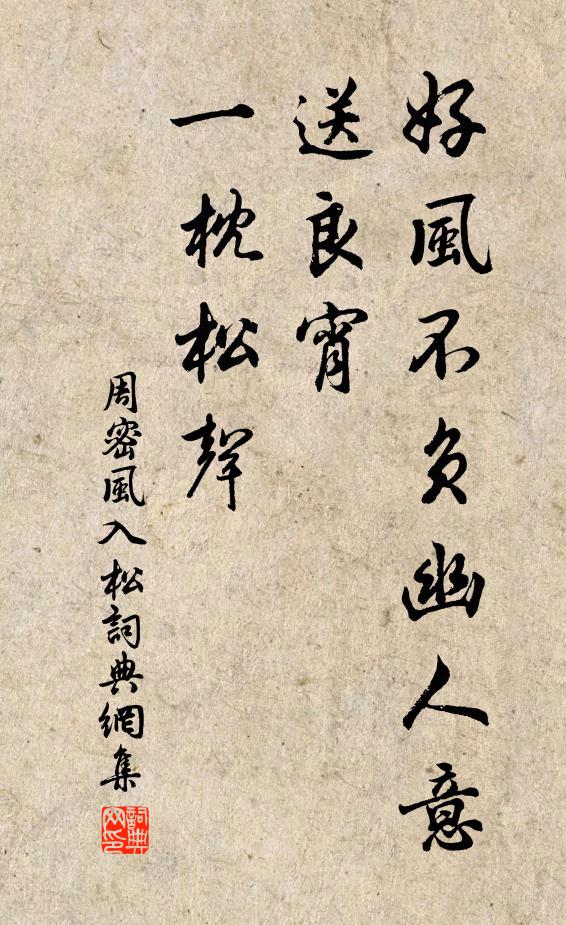 好風不負幽人意
送良宵
一枕松聲
周密風入松詞典網集
詞典网印